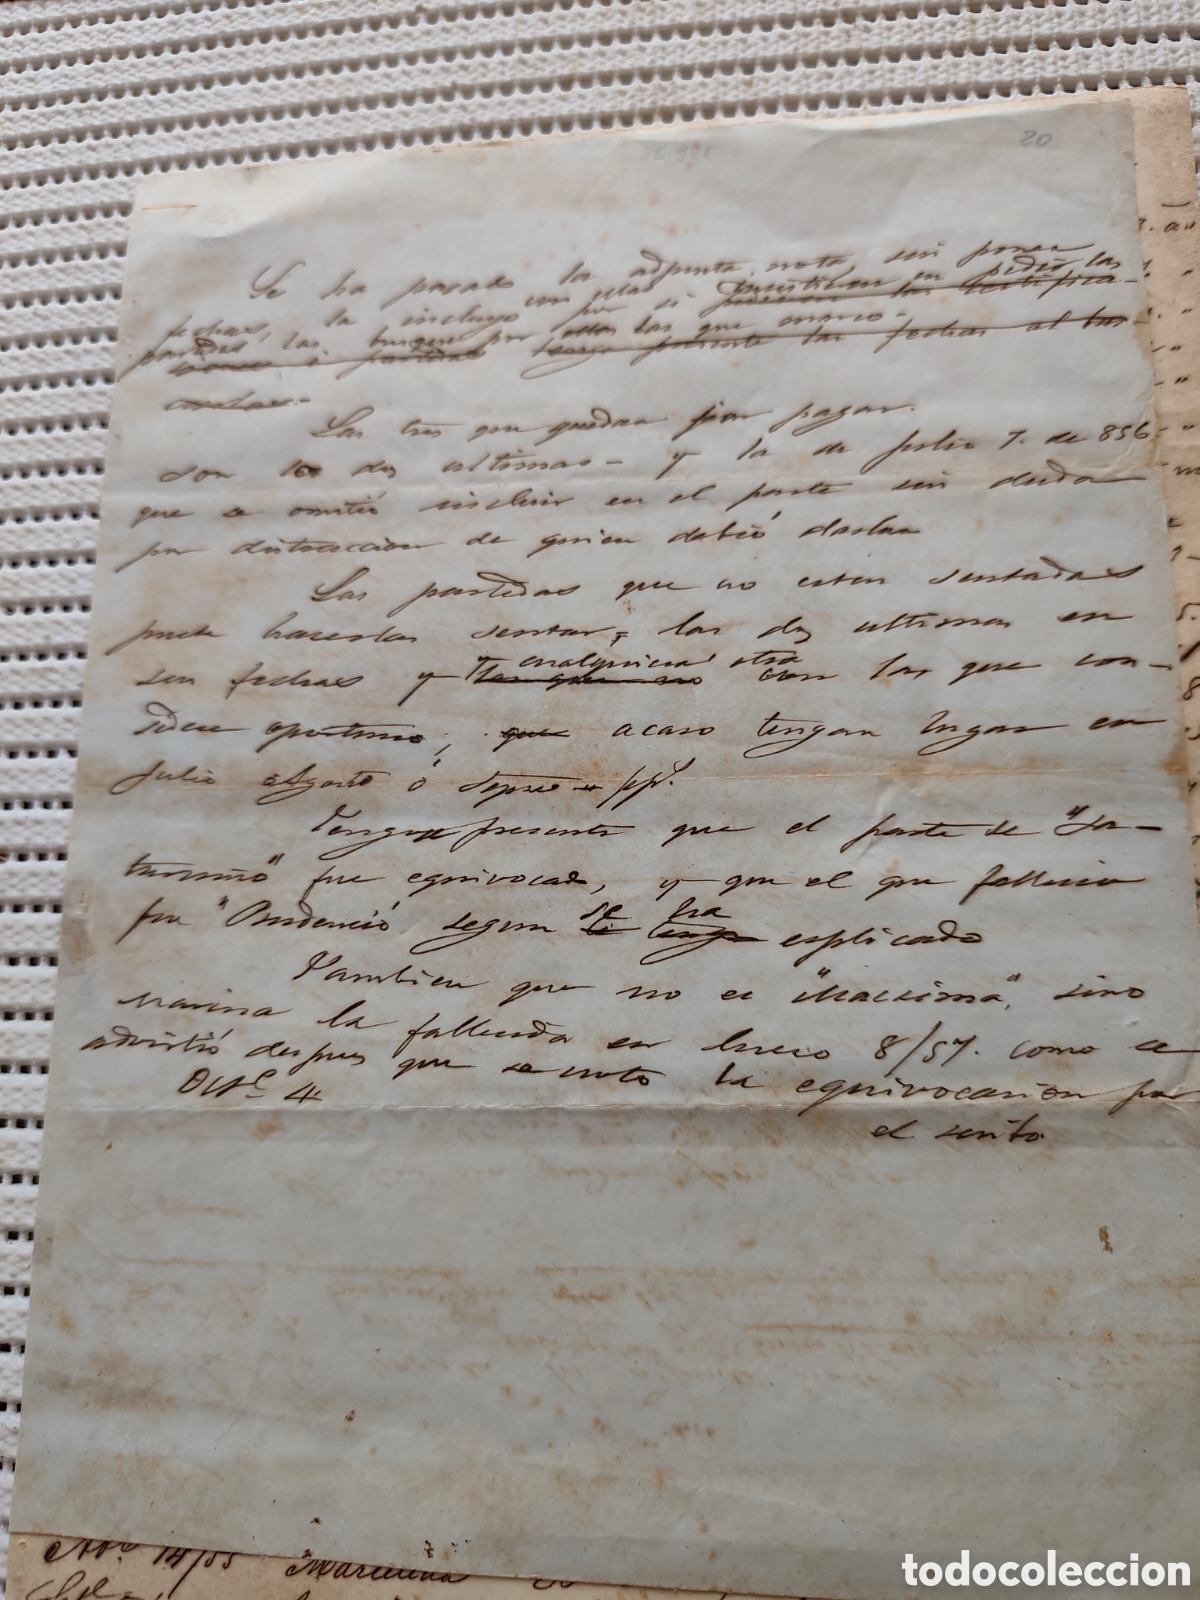 20
Se ha pasado la adjunta nota sin poner
fechas, la incluyo con ellas por si insistieren en pedir las
partidas, las busquen por ellas las que marco.
ó partidas tenga presente las fechas al
Las tres que quedan por pagar.
son las dos ultimas - y la de Julio 7. de 856
que se omitió incluir en el parte sin duda
por distraccion de quien debió darlas
Las partidas que no esten sentadas
puede hacerlas sentar, las dos ultimas en
sus fechas y cualquiera otra con las que con-
sidere oportuno, que acaso tengan lugar en
Julio Agosto ó
Tenga presente que el parte de "Sa-
turnino" fue equivocado, y que el que fallecio
fue "Prudencio" segun se ha esplicado
Tambien que no es "Maxima", sino
Marina la fallecida en Enero 8/57. como se
advirtió despues que se notó la equivocasion por
el
4
14/55 Marcelina
todocoleccion